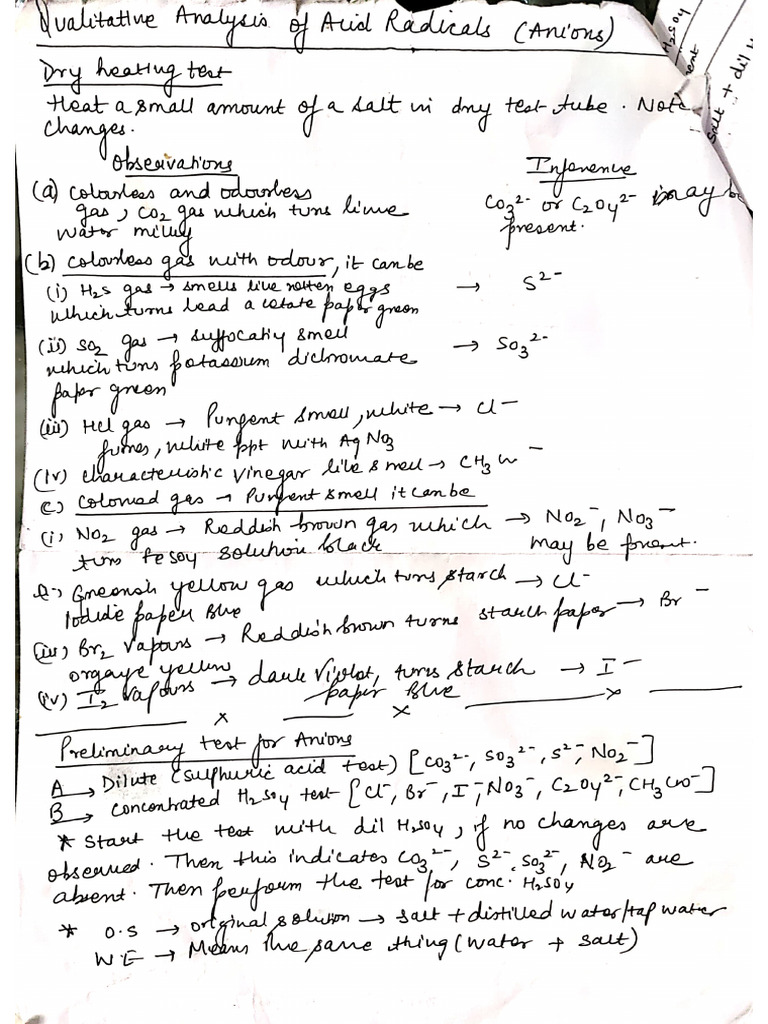 Qualitative Analysis of Acid Radicals (Anions)
H2SO4
salt + dil
Dry heating test
Heat a small amount of a salt in dry test tube. Note
changes.
Observations Inference
(a) Colourless and odourless
gas, CO2 gas which turns lime
water milky
CO3²⁻ or C2O4²⁻ may b
present.
(b) colourless gas with odour, it can be
(i) H2S gas → smells like rotten eggs → S²⁻
which turns lead acetate paper green
(ii) SO2 gas → suffocatiy smell → SO3²⁻
which turns potassium dichromate
paper green
(iii) HCl gas → Pungent smell, white → Cl⁻
fumes, white ppt with AgNO3
(iv) characteristic vinegar like smell → CH3
c) Coloured gas → Pungent smell it can be
(i) NO2 gas → Reddish brown gas which → NO2⁻, NO3⁻
turn FeSO4 solution black may be present.
Greenish yellow gas which turns starch → Cl⁻
Iodide paper Blue
(iii) Br2 vapours → Reddish brown turns starch paper → Br⁻
orgaye yellow
(iv) I2 vapours → dark violet, turns starch → I⁻
paper Blue
x x x
Preliminary test for Anions
A → Dilute (sulphuric acid test) [CO3²⁻, SO3²⁻, S²⁻, NO2⁻]
B → concentrated H2SO4 test [Cl⁻, Br⁻, I⁻, NO3⁻, C2O4²⁻, CH3COO⁻]
* Start the test with dil H2SO4, if no changes are
observed. Then this indicates CO3²⁻, S²⁻, SO3²⁻, NO2⁻ are
absent. Then perform the test for conc. H2SO4
* O.S → original solution → salt + distilled water/tap water
W.E → Means the same thing (water + salt)